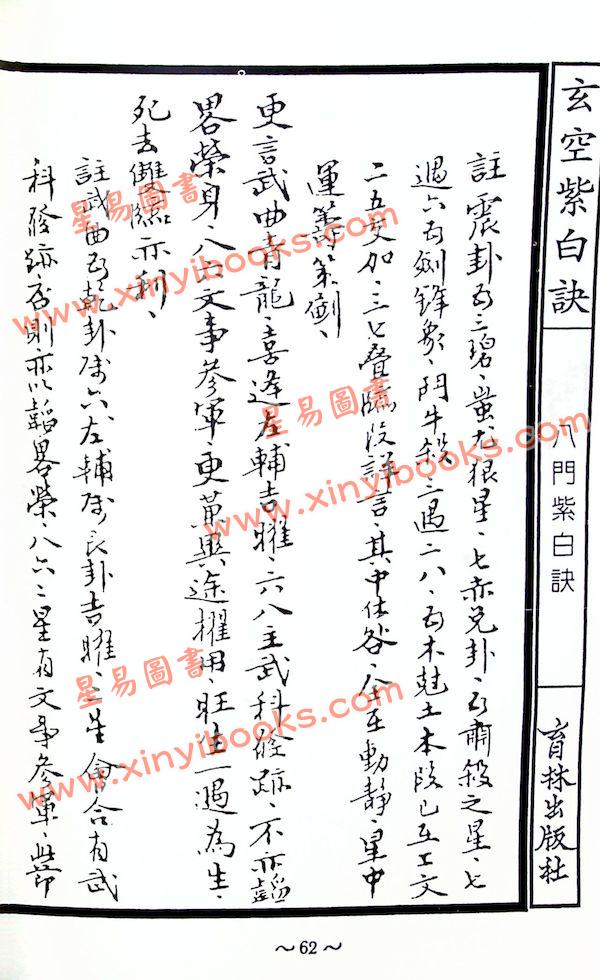 玄空紫白訣
八門紫白訣
育林出版社
註震卦為三碧、蚩尤狠星、七赤兌卦、為肅殺之星、七
遇六為劍鋒象、鬥牛殺、三遇二八、為木尅土本段已在上文
二五交加、三七叠臨段詳言、其中休咎、全在動靜、星中
運籌策劍、
更言武曲青龍、喜逢左輔吉曜、六八主武科發跡、不亦韜
畧榮身、八六文事參軍、更異途擢用、旺生一遇為生、
死去雙臨亦利、
註武曲為乾卦屬六、左輔屬艮卦吉曜、二星會合有武
科發跡、否則亦以韜畧榮、八六二星有文事參軍、此即
星易圖書
www.xinyibooks.com
星易圖書
www.xinyibooks.com
星易圖書
www.xinyibooks.com
~62~